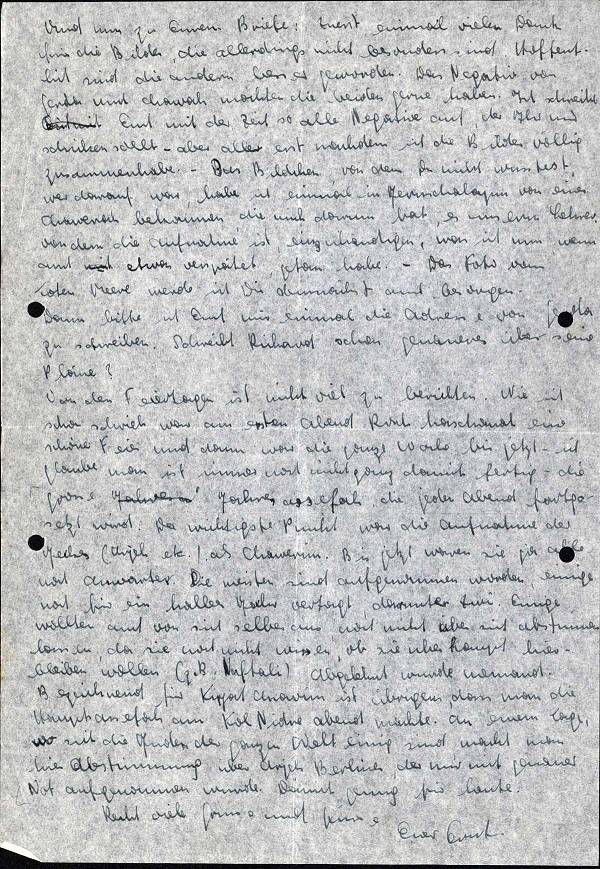 Und nun zu Eurem Briefe: Zuerst einmal vielen Dank
für die Bilder, die allerdings nicht besonders sind. Hoffent-
lich sind die andern besser geworden. Das Negativ von
und chawah möchten die beiden gerne haben. Ich schreibe
Euch mit der Zeit so alle Negative auf, die Ihr mir
schicken sollt - aber aller erst nachdem ich die Bilder völlig
zusammenhabe. - Das Bildchen von dem Du nicht wusstest,
wer darauf war, habe ich einmal in Jeruschalajim von einer
chawerah bekommen die mich darum bat, es unserm Lehrer
von dem die Aufnahme ist einzuhändigen, was ich nun wenn
auch etwas verspätet, getan habe. - Das Foto vom
roten Meere werde ich Dir demnächst auch besorgen.
Dann bitte ich Euch mir einmal die Adresse von
zu schreiben. Schreibt Richard schon genaueres über seine
Pläne?
Von den Feiertagen ist nicht viel zu berichten. Wie ich
schon schrieb war am ersten Abend Rosch haschanah eine
schöne Feier und dann war die ganze Woche bis jetzt - ich
glaube man ist immer noch nicht ganz damit fertig - die
grosse Jahresassefah die jeden Abend fortge-
setzt wird. Der wichtigste Punkt war die Aufnahme der
Jeckes (Arjeh etc.) als Chawerim. Bis jetzt waren sie ja alle
noch Anwärter. Die meisten sind aufgenommen worden, einige
noch für ein halbes Jahr vertagt darunter Zwi. Einige
wollten auch von sich selber aus noch nicht über sich abstimmen
lassen, da sie noch nicht wissen, ob sie überhaupt hier-
bleiben wollen (z.B. Naftali). Abgelehnt wurde niemand.
Bezeichnend für ist übrigens dass man die
Hauptassefah am Kol Nidre abend machte. An einem Tage,
wo sich die Juden der ganzen Welt einig sind macht man
hier Abstimmung über Arjeh Berliner, der nur mit genauer
Not aufgenommen wurde. Damit genug für heute.
Recht viele Grüsse und Küsse
Euer Ernst.